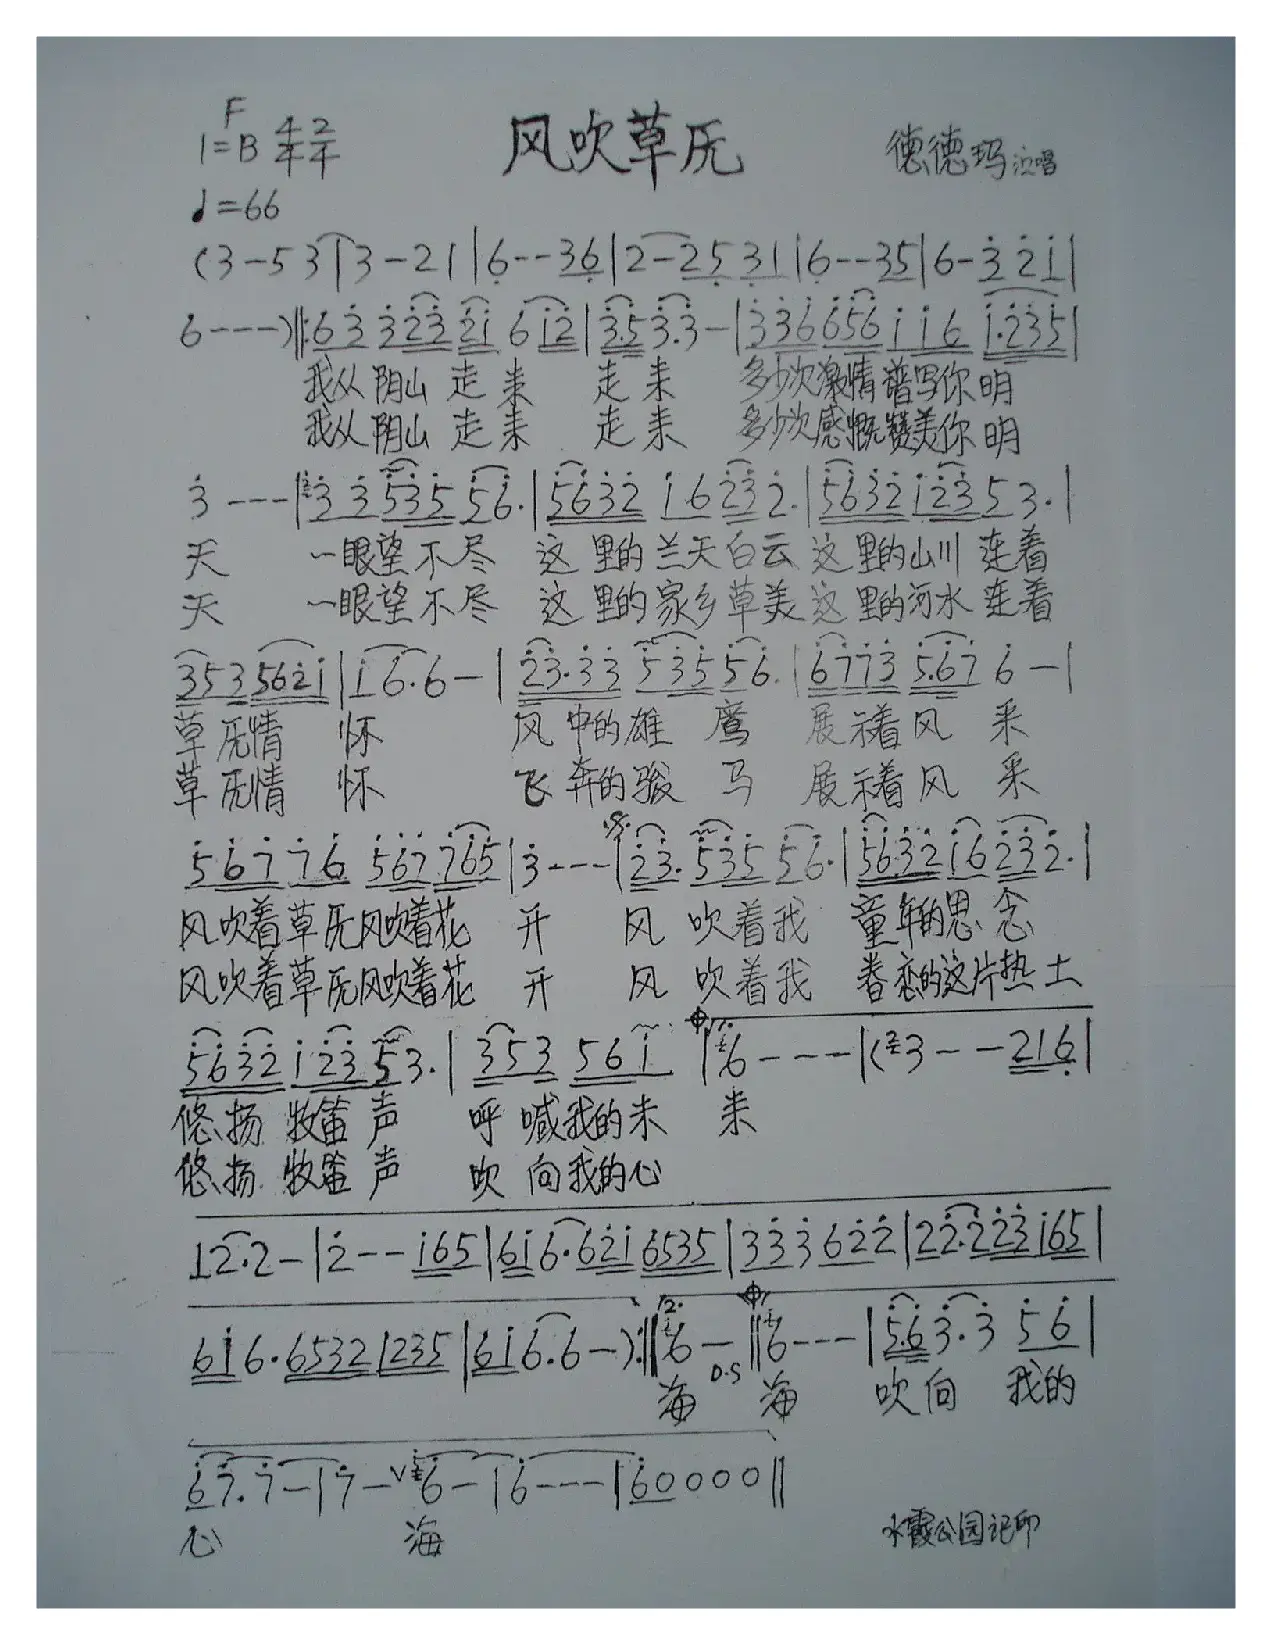 F
1=B 4/4 2/4
风吹草原
德德玛演唱
♩=66
(3-53|3-21|6--36|2-25 31|6--35|6-321|
6---)‖:63 323 21 6 12|3.5 3.3-|336 656 116 1.235|
我从阴山走来 走来 多少次激情谱写你明
我从阴山走来 走来 多少次感慨赞美你明
3---|33 535 56.|5632 16 23 2.|5632 1235 3.|
天 一眼望不尽 这里的兰天白云 这里的山川连着
天 一眼望不尽 这里的家乡草美 这里的河水连着
353 5621|16.6-|23.33 535 56.|6773 5.67 6-|
草原情怀 风中的雄鹰 展示着风采
草原情怀 飞奔的骏马 展示着风采
567 76 567 765|3---|23. 535 56.|5632 16 232.|
风吹着草原风吹着花开 风吹着我 童年的思念
风吹着草原风吹着花开 风吹着我 眷恋的这片热土
5632 123 53.|353 561|6---|(3--216|
悠扬牧笛声 呼喊我的未来
悠扬牧笛声 吹向我的心
12.2-|2--165|616.621 6535|333 622|22.223 165|
616.6532 1235|616.6-):‖2. 6-‖6---|5.6 3.3 56|
D.S
海 海 吹向 我的
67.7-|7-V6-|6---|60000‖
心 海
水霞公园记印